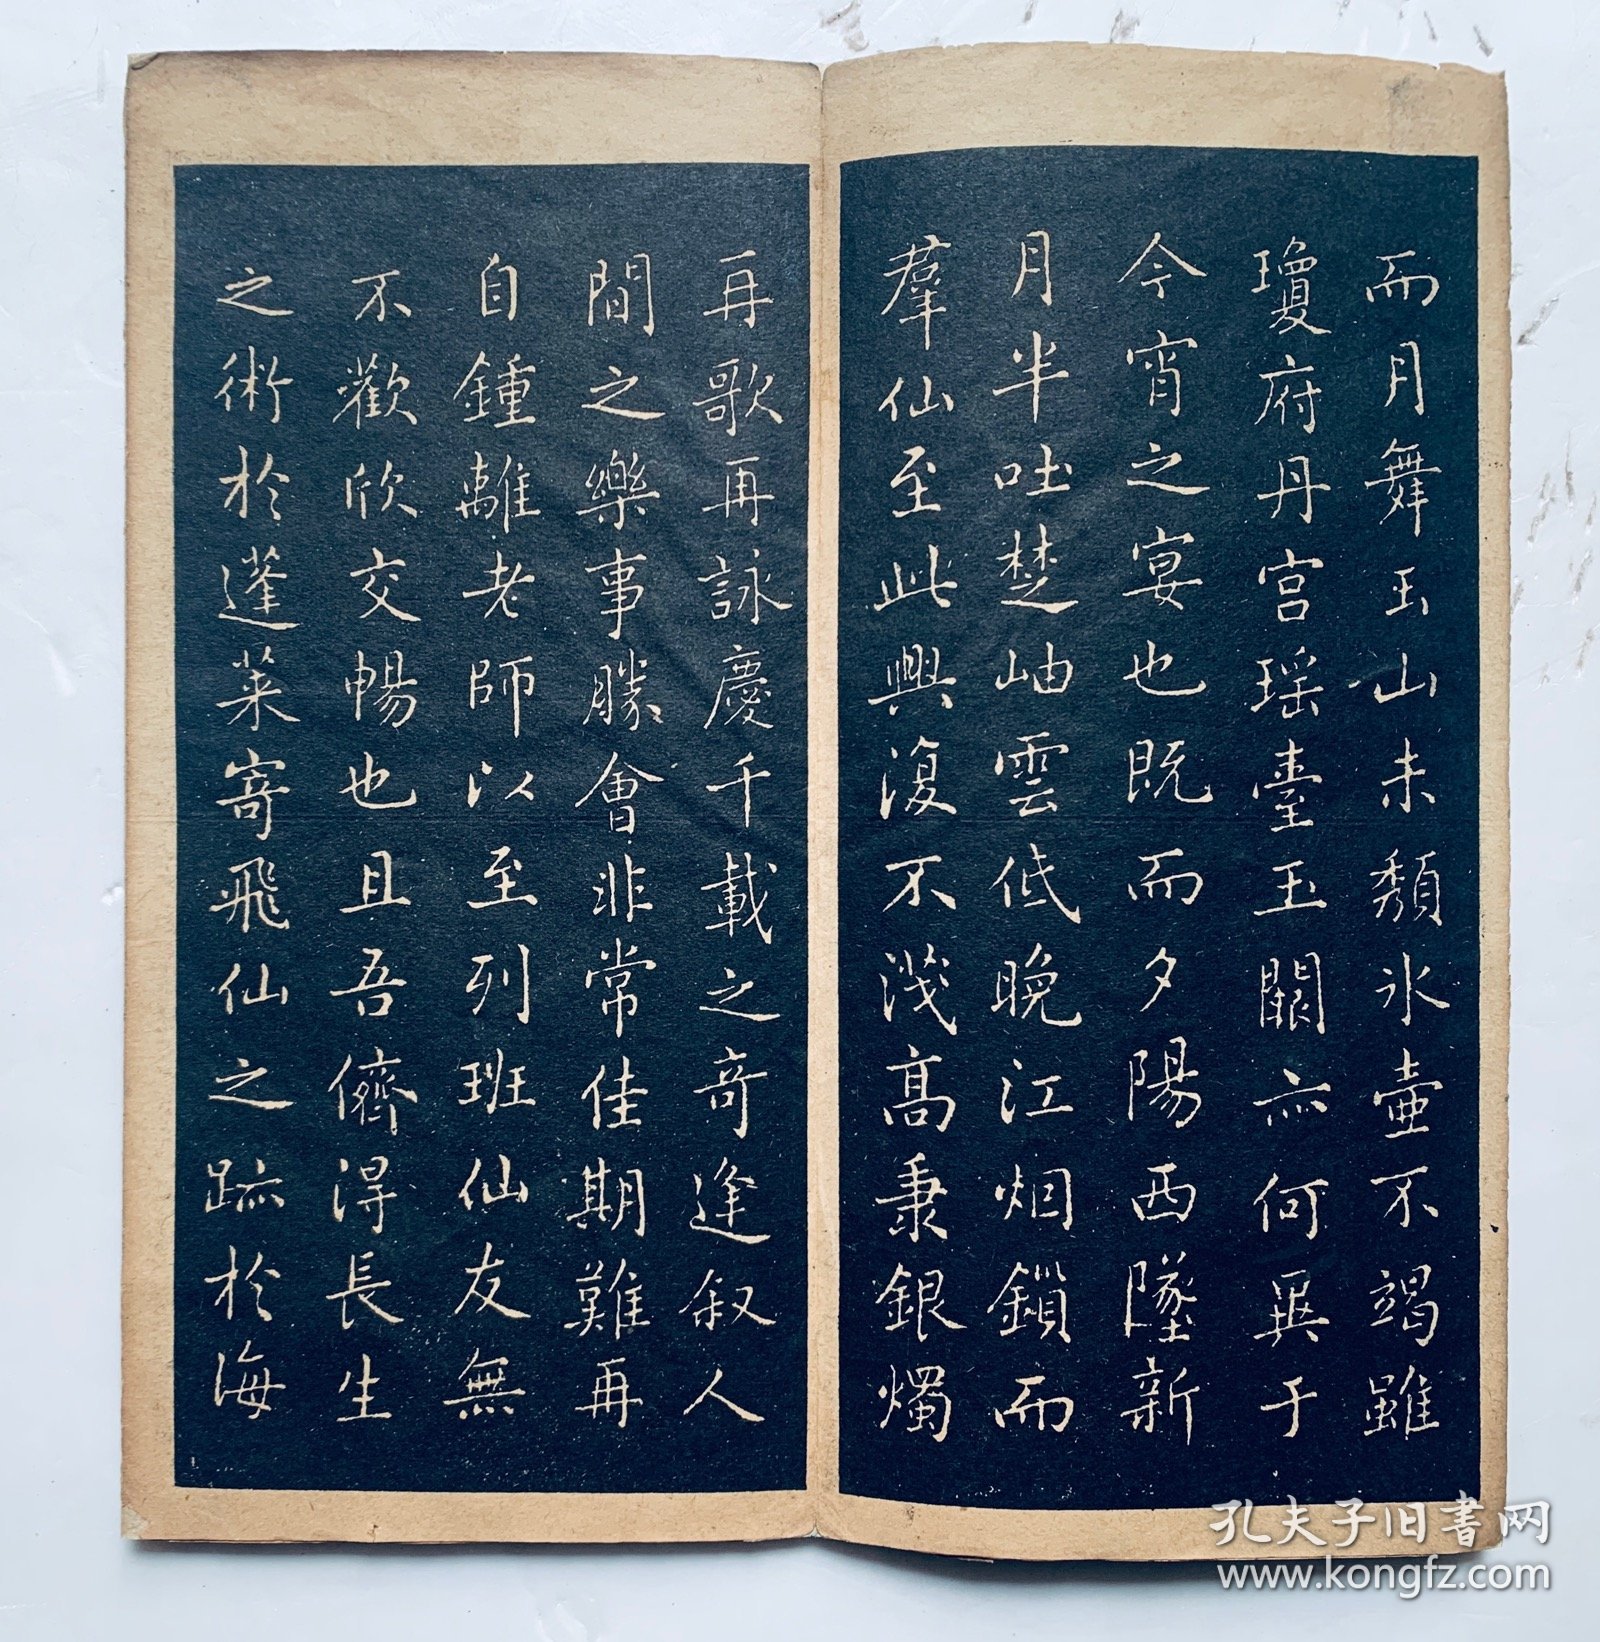 而月舞玉山未頹氷壷不竭雖
瓊府丹宫瑶臺玉闕亦何異于
今宵之宴也既而夕陽西墜新
月半吐楚岫雲低晚江烟鎖而
羣仙至此興復不淺髙秉銀燭
再歌再詠慶千載之竒逢叙人
間之樂事勝會非常佳期難再
自鍾離老師以至列班仙友無
不歡欣交暢也且吾儕得長生
之術於蓬萊寄飛仙之跡於海
孔夫子旧書网
www.kongfz.com